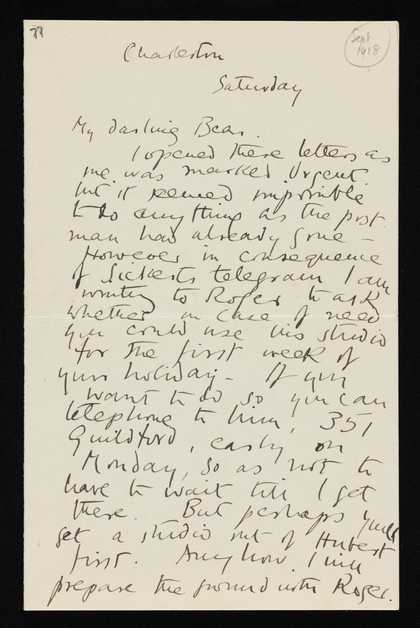 Sept
1918
Charleston
Saturday
My darling Bear.
I opened these letters as
one was marked Urgent.
but it seemed impossible
to do anything as the post
man had already gone –
However in consequence
of Sickerts telegram I am
writing to Roger to ask
whether in case of need
you could use his studio
for the first week of
your holiday – If you
want to do so you can
telephone to him, 351
Guildford, early on
Monday, so as not to
have to wait till I get
there. But perhaps you'll
get a studio out of Hubert
first. Anyhow I will
prepare the ground with Roger.